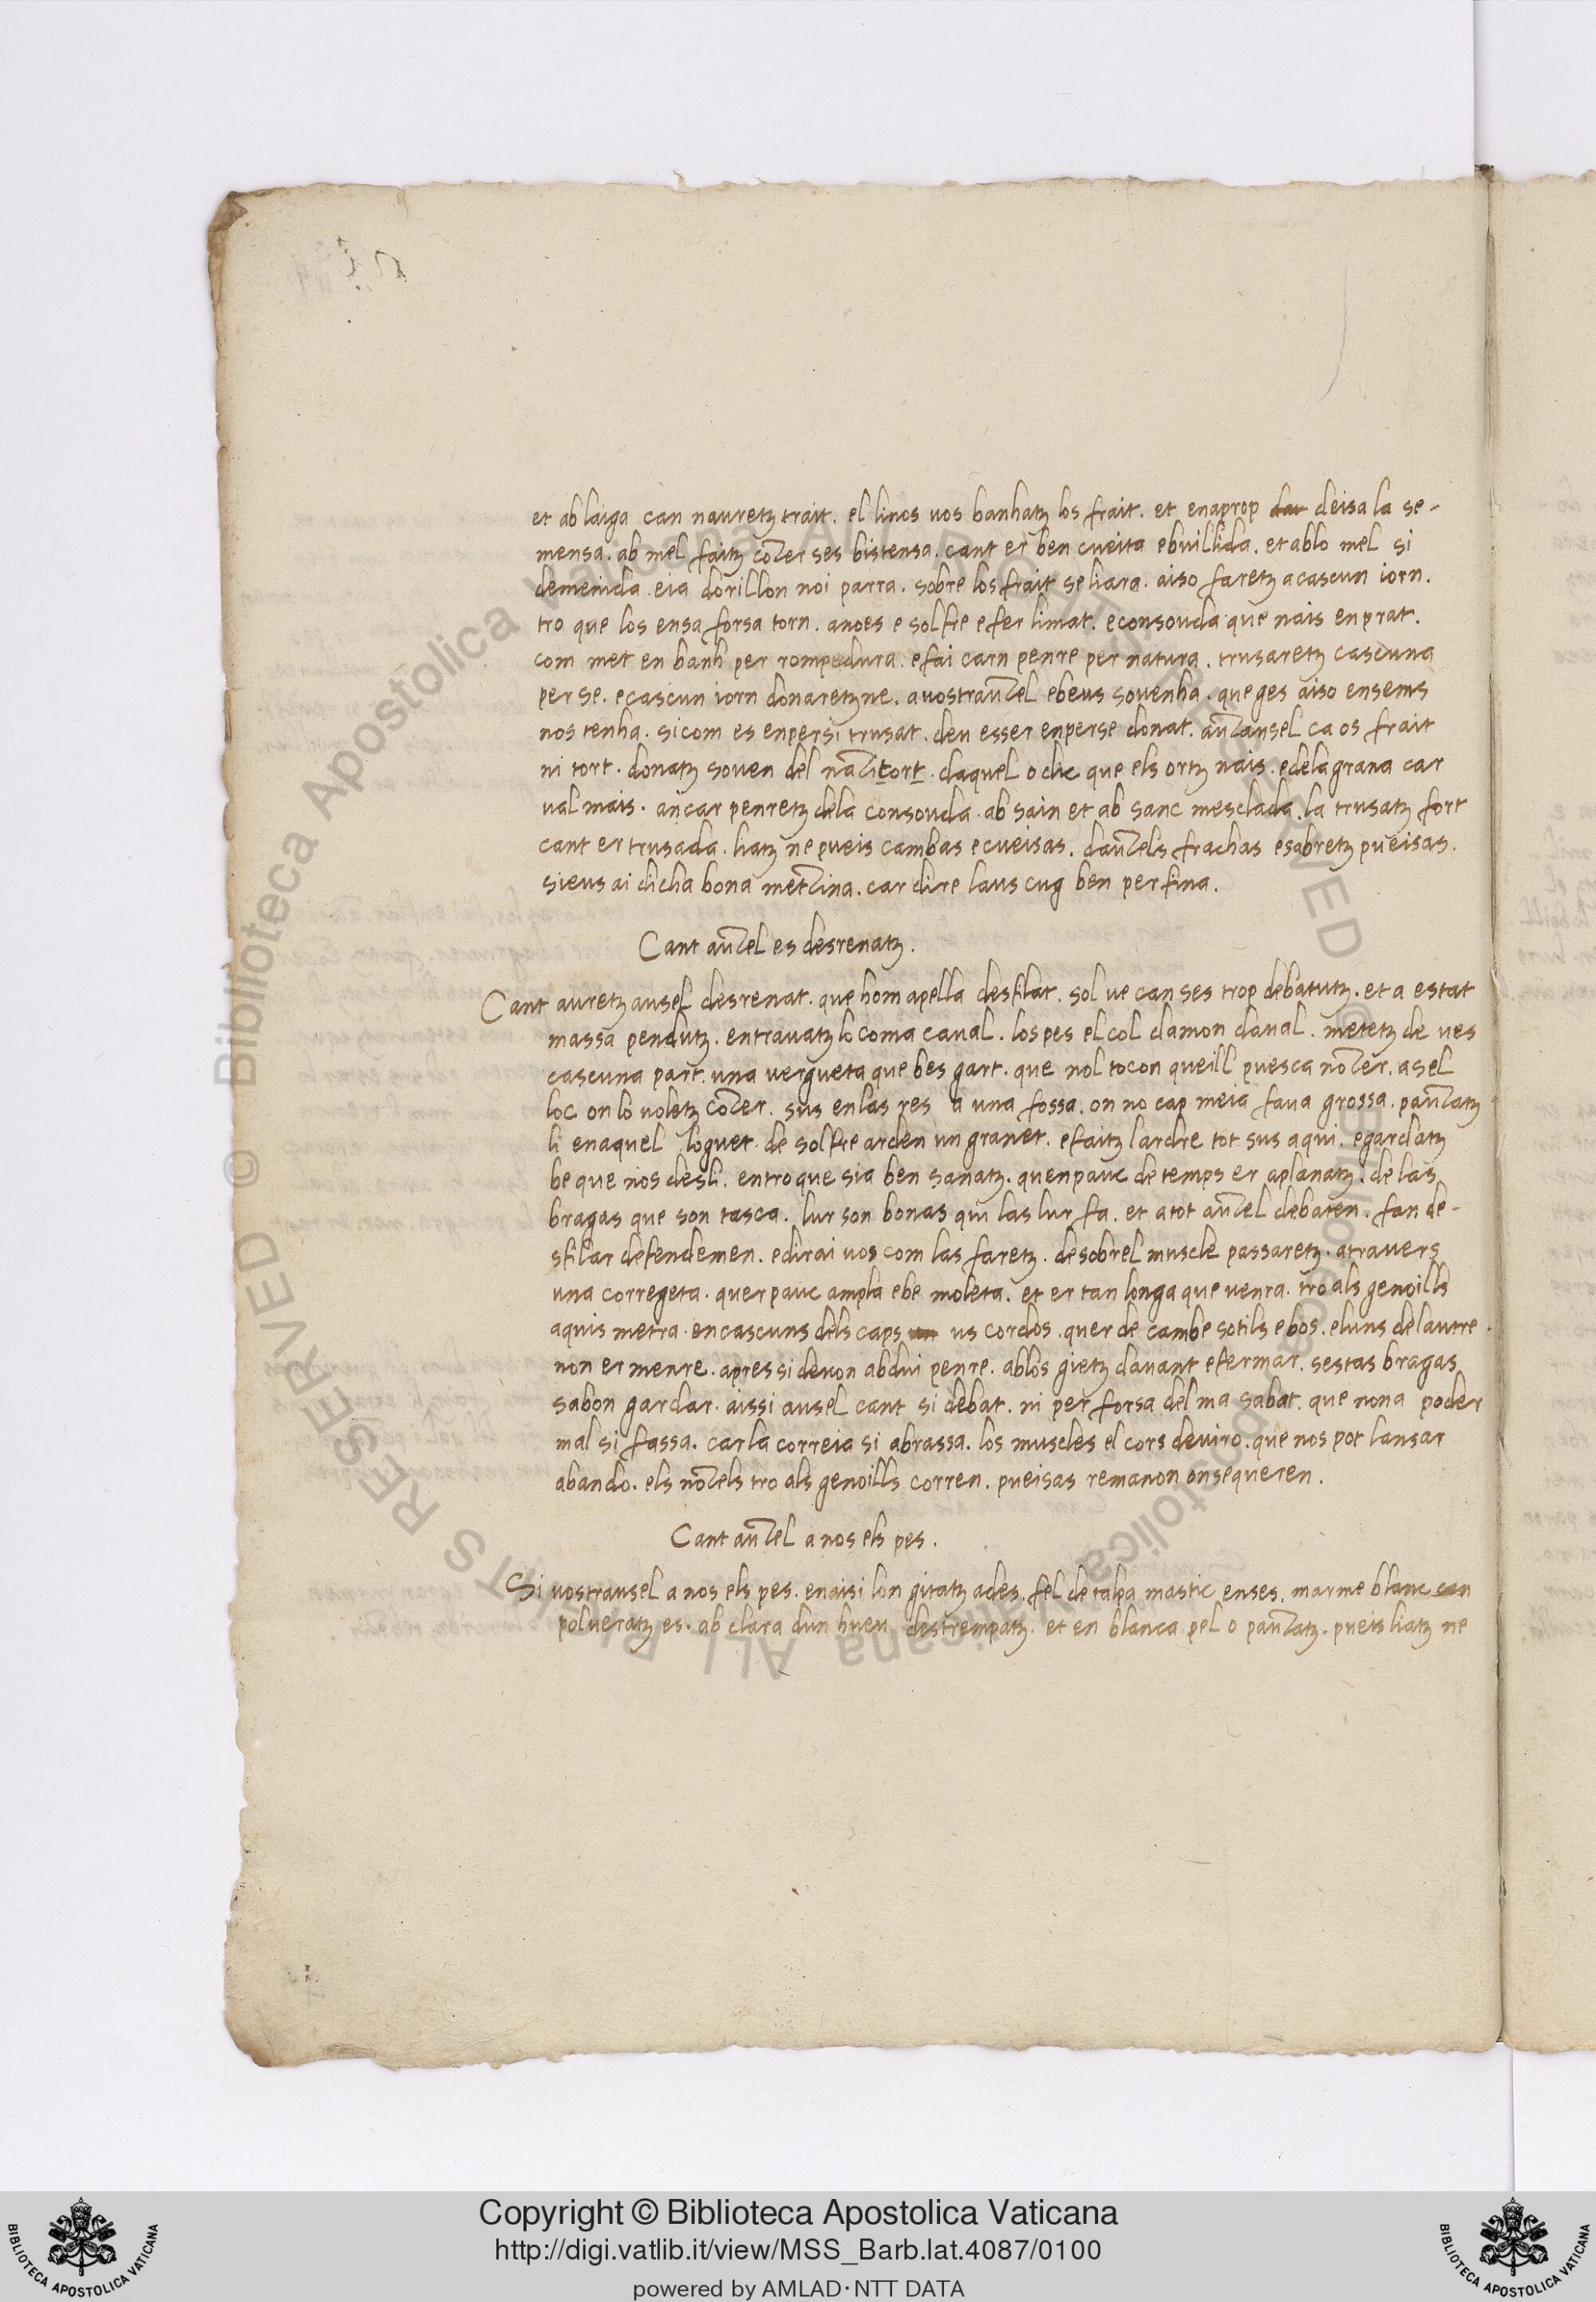 et ab laiga can nauretz trait. el linos uos banhatz los frait. et enaprop dar deisa la se-
mensa. ab mel faitz cozer ses bistensa. cant er ben cueita ebuillida. et ablo mel si
demeinda eia dorillon noi parra. sobre los frait se liara. aiso faretz acascun iorn.
tro que los ensa forsa torn. anoes e solfre e fer limat. econsouda que nais enprat.
com met en banh per rompedura. efai carn penre per natura. trusaretz cascuna
per se. ecascun iorn donaretz ne. auostrauzel ebeus souenha. que ges aiso ensems
nos tenha. sicom es enpersi trusat. deu esser enperse donat. auzansel ca os frait
ni tort. donatz souen del nazitort. daquel o dic que els ortz nais. edela grana car
ual mais. ancar penretz dela consouda. ab sain et ab sanc mesclada. la trusatz fort
cant er trusada. liatz ne pueis cambas e cueisas. dauzels frachas esabretz pueisas.
sieus ai dicha bona metzina. car dire laus cug ben per fina.
Cant auzel es desrenatz.
Cant auretz ausel desrenat. que hom apella desfilat. sol ue can ses trop debatutz. et a estat
massa pendutz. entrauatz lo coma caual. los pes el col damon daual. metetz de ues
cascuna part. una vergueta que bes gart. que nol tocon queill puesca nozer. asel
loc on lo uoletz cozer. sus en las res a una fossa. on no cap meia faua grossa. pauzatz
li enaquel loguet. de solfre arden un granet. efaitz lardre tot sus aqui. egardatz
be que nios desli. entro que sia ben sanatz. quen pauc de temps er aplanatz. de las
bragas que son tasca. lur son bonas qui las lur fa. et atot auzel debaten. fan de-
sfilar defendemen. edirai uos com las faretz. desobrel muscle passaretz. atrauers
una correqeta. quer pauc ampla ebe moleta. et er tan longa que uenra. tro als genoills
aquis metra. encascuns dels caps un us cordos. quer de cambe sotils e bos. eluns delautre.
non er menre. apres si deuon abdui penre. ablos gietz dauant efermar. sestas bragas
sabon gardar. aissi ausel cant si debat. ni per forsa del ma sabat. que nona poder
mal si fassa. car la correia si abrassa. los muscles el cors deuiro. que nos pot lansar
abando. els nozels tro als genoills corren. pueisas remanon onsequeren.
Cant auzel a nos els pes.
Si uostrausel a nos els pes. enaisi lon gitatz ades. fel de talpa mastic enses. marme blanc can
polueratz es. ab clara dun hueu destrempatz. et en blanca pel o pauzatz. pueis liatz ne
© Biblioteca Apostolica Vaticana ALL RIGHTS RESERVED
Copyright © Biblioteca Apostolica Vaticana
http://digi.vatlib.it/view/MSS_Barb.lat.4087/0100
powered by AMLAD·NTT DATA
BIBLIOTECA APOSTOLICA VATICANA
BIBLIOTECA APOSTOLICA VATICANA